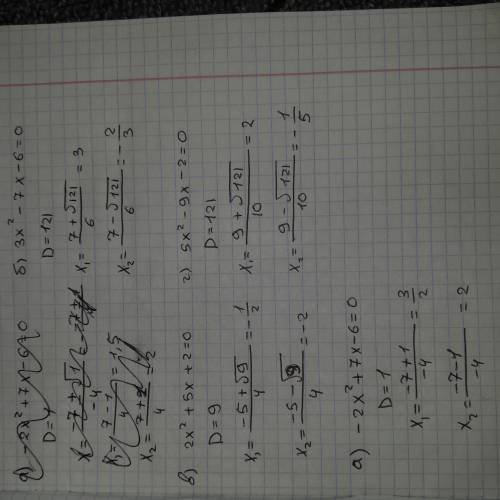 а) -2x² + 7x - 6 = 0
D = 1
б) 3x² - 7x - 6 = 0
D = 121
x₁ = (7 + √121)/6 = 3
x₂ = (7 - √121)/6 = -2/3
в) 2x² + 5x + 2 = 0
D = 9
x₁ = (-5 + √9)/4 = -1/2
x₂ = (-5 - √9)/4 = -2
г) 5x² - 9x - 2 = 0
D = 121
x₁ = (9 + √121)/10 = 2
x₂ = (9 - √121)/10 = -1/5
а) -2x² + 7x - 6 = 0
D = 1
x₁ = (-7 + 1)/-4 = 3/2
x₂ = (-7 - 1)/-4 = 2